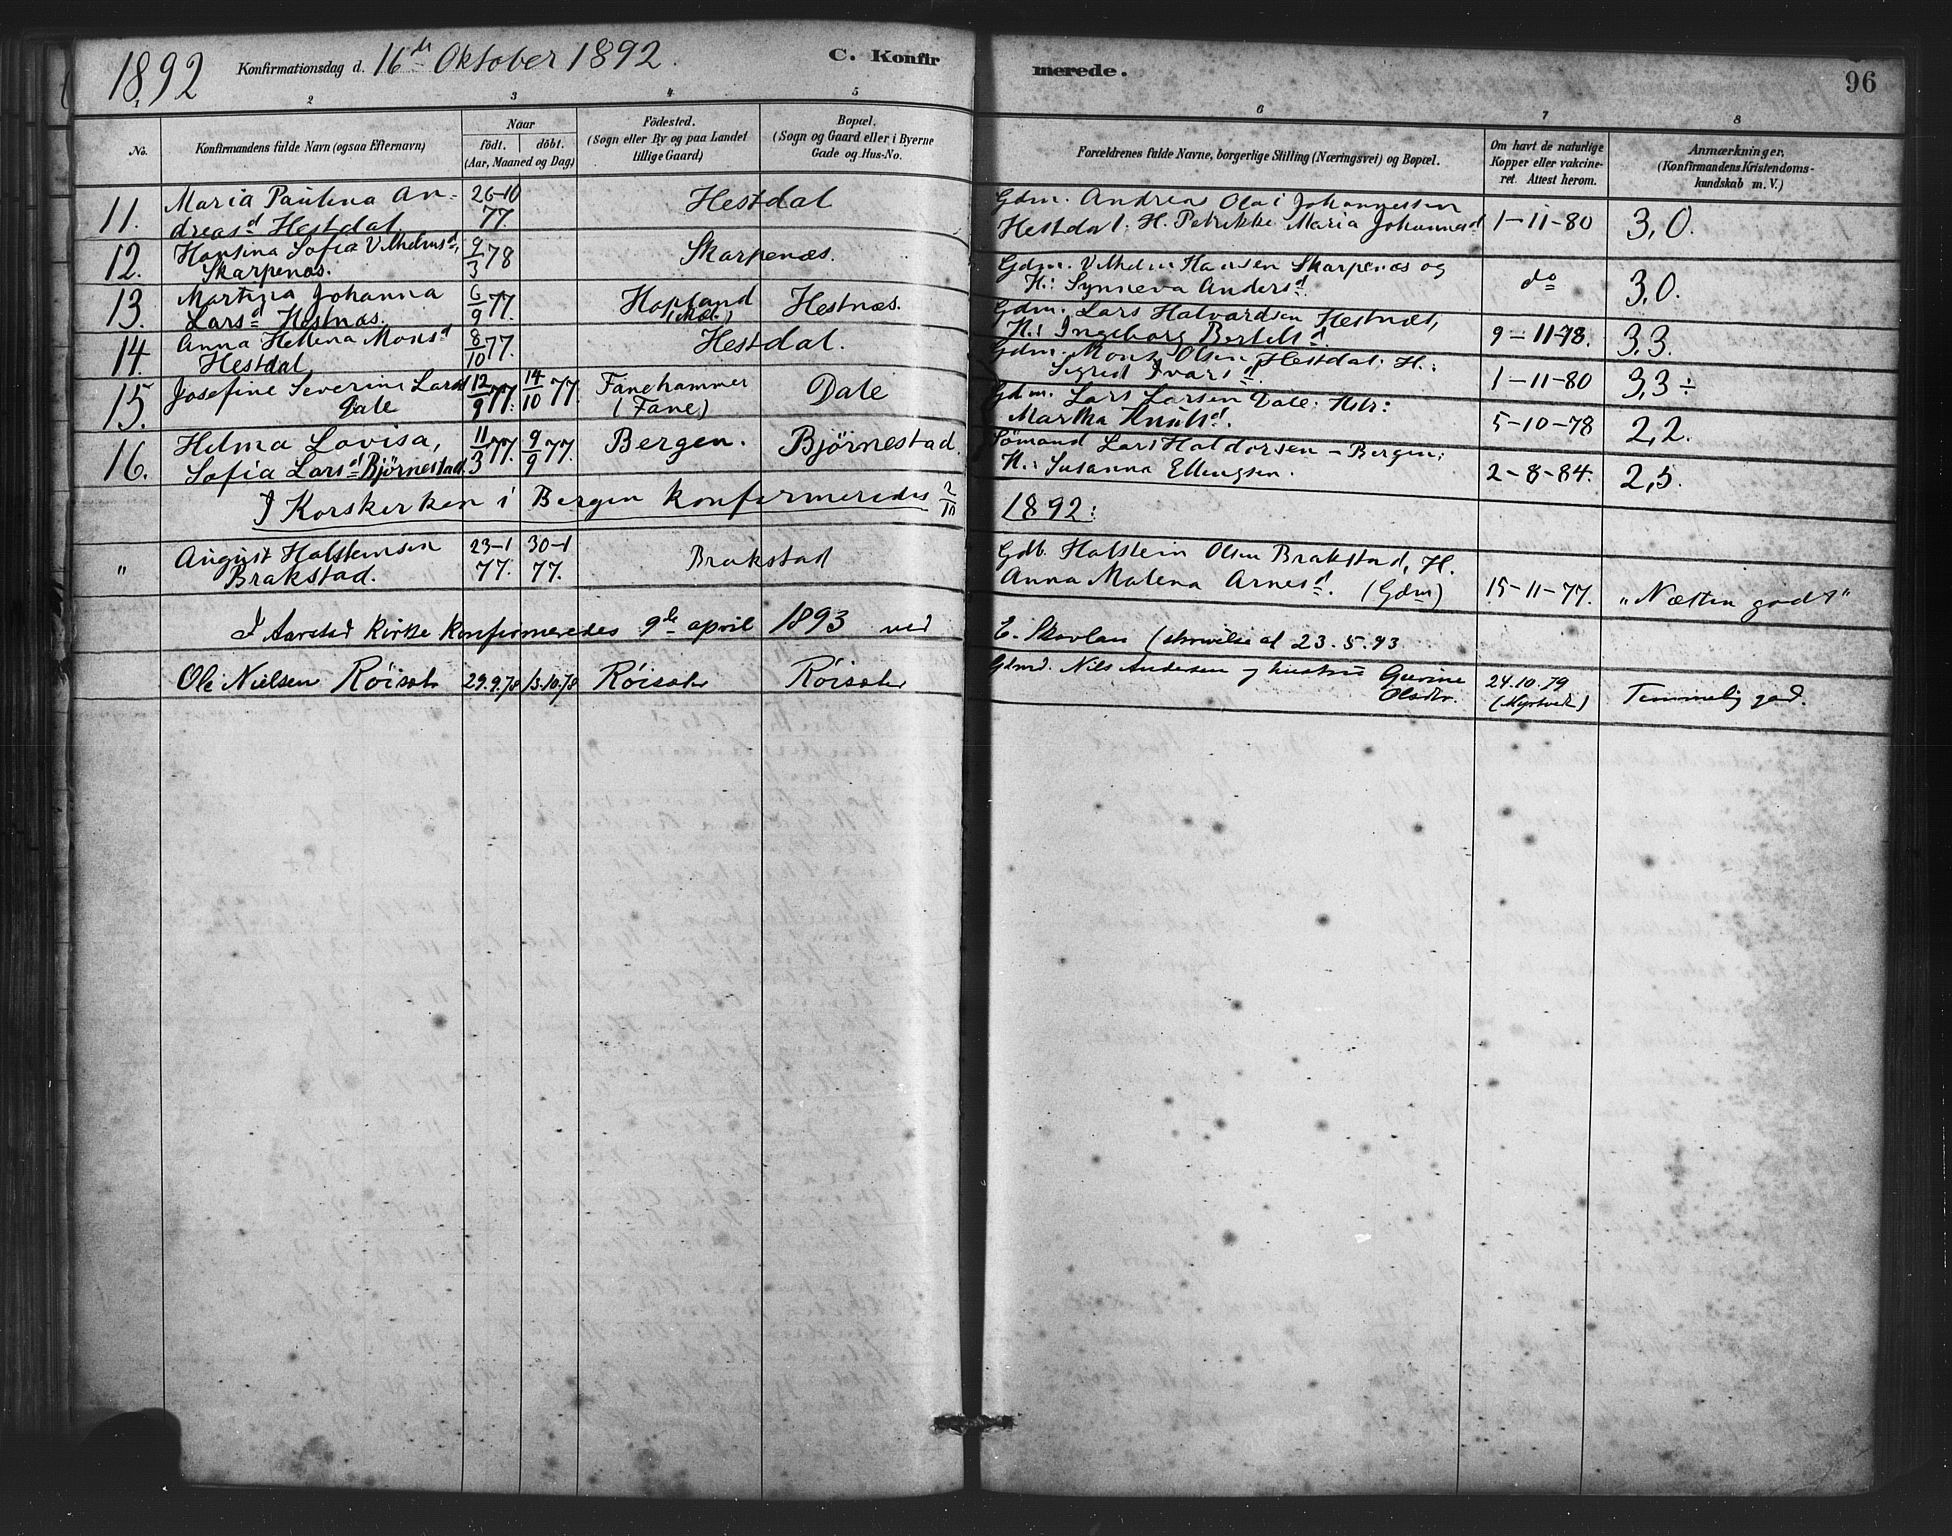 1892 Konfirmationsdag d. 16de Oktober 1892. C. Konfirmerede. 96
2 3 4 5 6 7 8
No. Konfirmandens fulde Navn (ogsaa Efternavn) Naar födt. döbt. (Aar, Maaned og Dag) Födested. (Sogn eller By og paa Landet tillige Gaard) Bopæl. (Sogn og Gaard eller i Byerne Gade og Hus-No. Forældrenes fulde Navne, borgerlige Stilling (Næringsvei) og Bopæl. Om havt de naturlige Kopper eller vakcineret. Attest herom. Anmærkninger, (Konfirmandens Kristendomskundskab m. V.)
11. Maria Paulina An- 26-10 Hestdal Gdm. Andrea Olai Johannessen
dreasd Hestdal 77. Hestdal. H. Petrikke Maria Johannesd 1-11-80 3,0.
12. Hansina Sofia Vilhelmsd, 9/3 78 Skarpenæs. Gdm. Vilhelm Hansen Skarpenæs og do 3,0.
Skarpenæs. H.: Synneva Andersd.
13. Martina Johanna 6/9 77. Hopland Hestnæs. Gdm. Lars Halvardsen Hestnæs,
Larsd Hestnæs. H.: Ingeborg Bertelsd. 9-11-78. 3,3.
14. Anna Hellena Monsd 8/10 77. Hestdal. Gdm. Mons Olsen Hestdal. H.:
Hestdal Sigrid Ivarsd. 1-11-80 3,3÷
15. Josefine Severine Larsd 12/9 77. 14/10 77. Fanehammer Dale Gdm. Lars Larsen Dale. Hstr:
Dale (Fane) Martha Knutsd. 5-10-78 2,2.
16. Helma Lovisa, 11/3 77. 9/9 77. Bergen. Bjørnestad. Sømand Lars Haldorsen - Bergen;
Sofia Larsd Bjørnestad. H.: Susanna Ellingsen. 2-8-84. 2,5.
I Korskirken i Bergen konfirmeredes 2/10 1892:
" August Halsteinsen 23-1 30-1 Brakstad Gdb. Halstein Olsen Brakstad, H.
Brakstad. 77. 77. Anna Malena Arnesd. (Gdm) 15-11-77. "Næsten godt"
I Aarstad Kirke konfirmeredes 9de april 1893 ved E. Skavlan (skrivelse af 23.5.93
Ole Nielsen Röisæter 29.9.78 13.10.78 Röisæter Röisæter Gdmd. Nils Andersen og hustru Gurine 24.10.79
Olsdtr. Temmelig god.